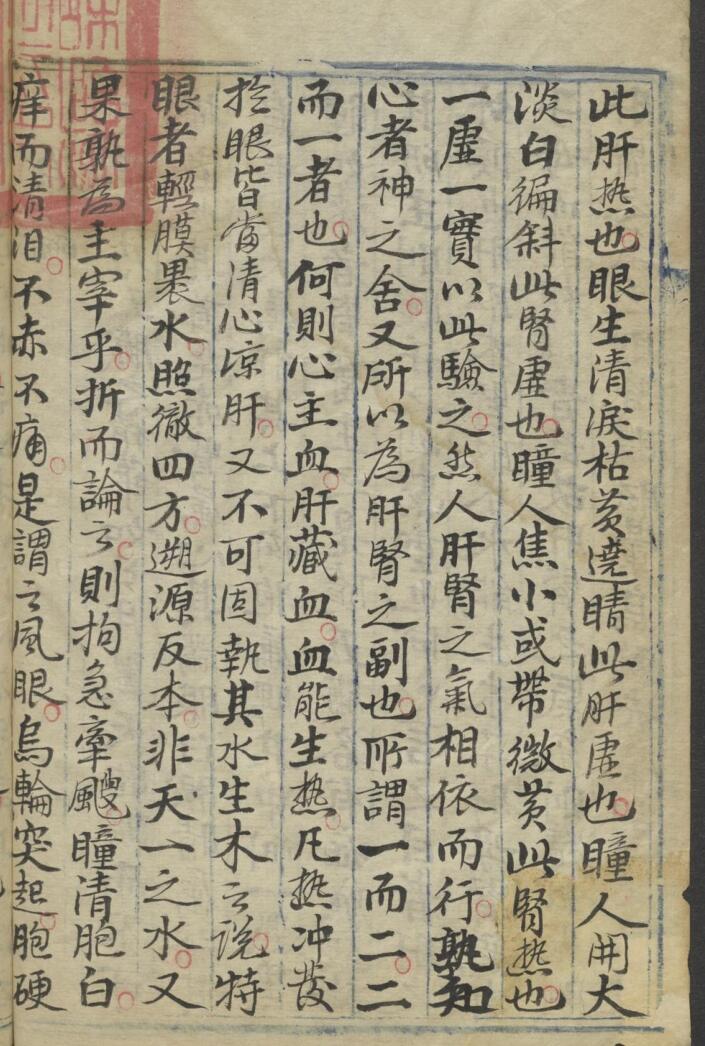 此肝热也眼生清淚枯黄遶睛此肝虚也瞳人開大
淡白偏斜此腎虚也瞳人焦小或帶微黄此腎热也
一虚一實以此驗之然人肝腎之氣相依而行孰知
心者神之舍又所以為肝腎之副也所謂一而二二
而一者也何則心主血肝藏血血能生热凡热冲發
於眼皆當清心凉肝又不可固執其水生木之說特
眼者輕膜裹水照徹四方遡源反本非天一之水又
果孰為主宰乎折而論之則拘急牽飕瞳清胞白
痒而清泪不赤不痛是謂之風眼烏輪突起胞硬